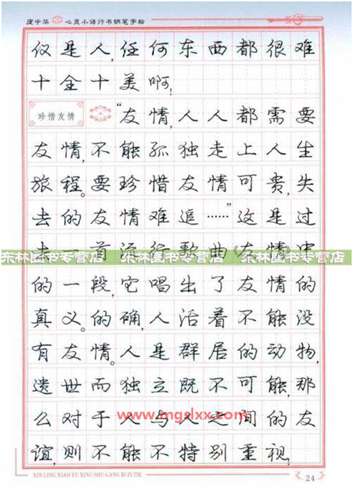 庞中华 心灵小语行书钢笔字帖
仅是人,任何东西都很难
十全十美啊!
珍惜友情 “友情,人人都需要
友情,不能孤独走上人生
旅程。要珍惜友情可贵,失
去的友情难追……”这是过
去一首流行歌曲《友情》中
东林图书专营店 东林图书专营店 东林图书专营店
的一段,它唱出了友情的
真义。的确,人活着不能没
有友情。人是群居的动物,
遗世而独立既不可能,那
www.mgslxx.com
么对于人与人之间的友
谊,则不能不特别重视,
XINLING XIAOYU XINGSHU GANGBI ZITIE
24